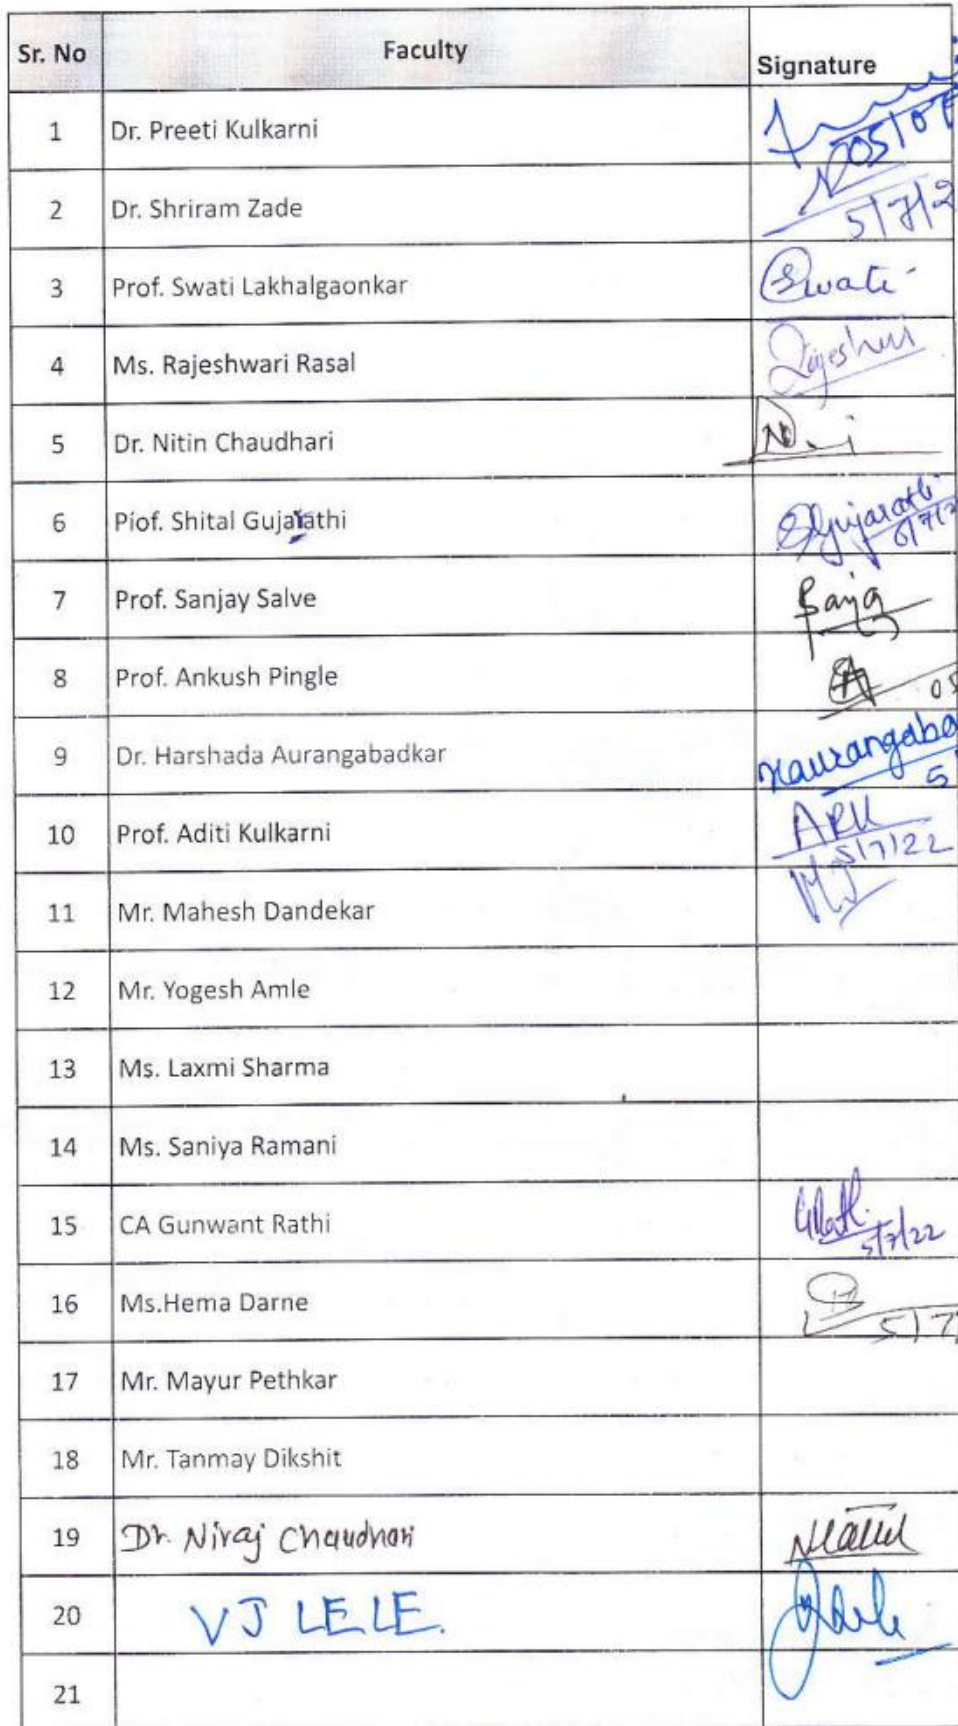 Sr. No Faculty Signature
1 Dr. Preeti Kulkarni 05/07
2 Dr. Shriram Zade 5/7/2
3 Prof. Swati Lakhalgaonkar Swati
4 Ms. Rajeshwari Rasal
5 Dr. Nitin Chaudhari
6 Piof. Shital Gujarathi SGujarathi
7 Prof. Sanjay Salve
8 Prof. Ankush Pingle 05
9 Dr. Harshada Aurangabadkar Haurangaba 5
10 Prof. Aditi Kulkarni ARK 5/7/22
11 Mr. Mahesh Dandekar
12 Mr. Yogesh Amle
13 Ms. Laxmi Sharma
14 Ms. Saniya Ramani
15 CA Gunwant Rathi 5/7/22
16 Ms.Hema Darne 5/7/
17 Mr. Mayur Pethkar
18 Mr. Tanmay Dikshit
19 Dr. Niraj Chaudhari
20 VJ LELE.
21